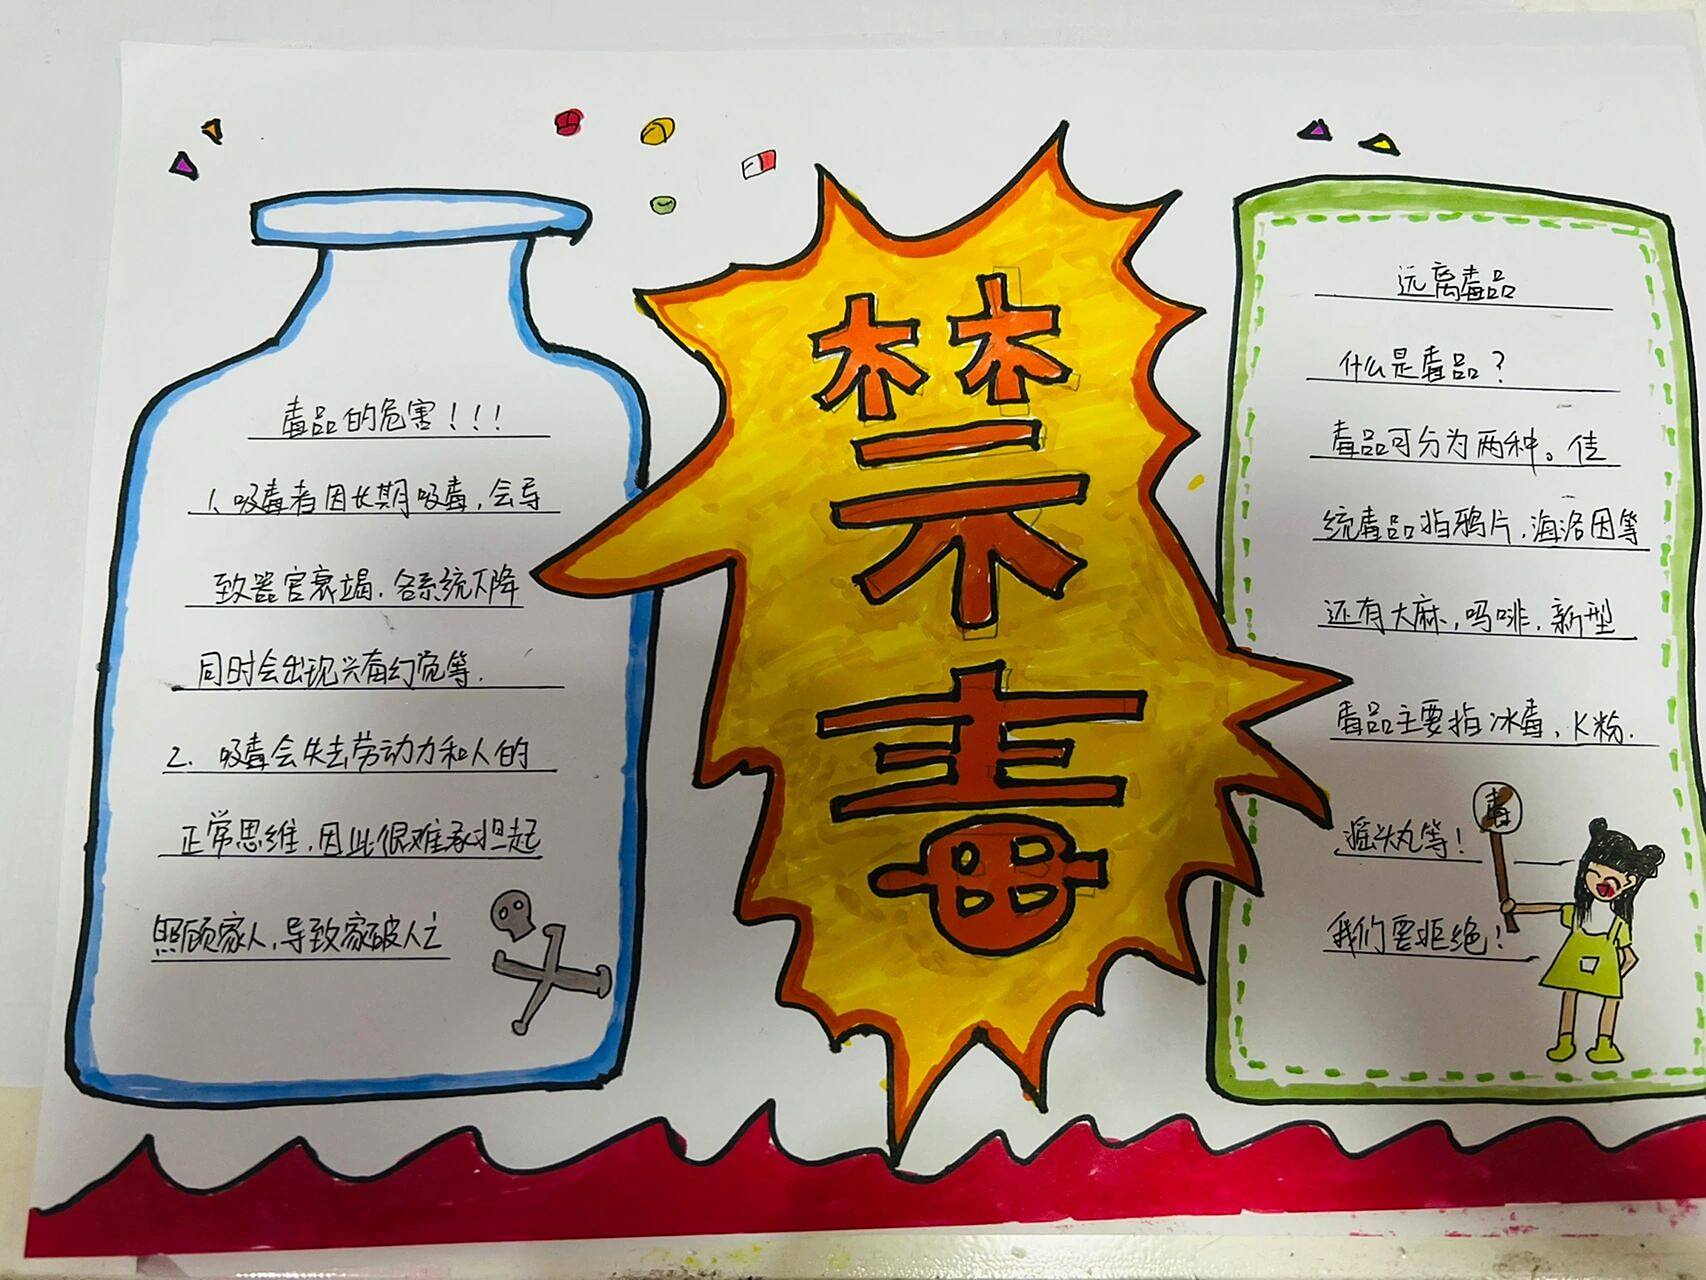 毒品的危害！！！
1、吸毒者因长期吸毒，会导
致器官衰竭，各系统下降
同时会出现兴奋幻觉等.
2. 吸毒会失去劳动力和人的
正常思维，因此很难承担起
照顾家人，导致家破人亡
禁
毒
远离毒品
什么是毒品？
毒品可分为两种。传
统毒品指鸦片，海洛因等
还有大麻，吗啡，新型
毒品主要指冰毒、K粉.
摇头丸等！
我们要拒绝！
毒